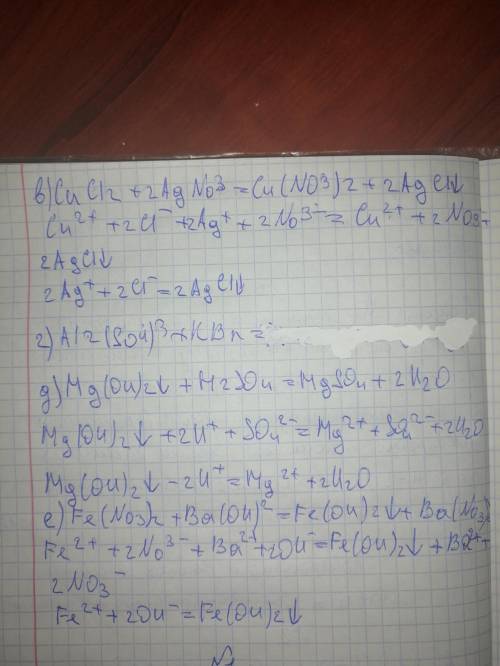 в) CuCl2 + 2AgNO3 = Cu(NO3)2 + 2AgCl↓
Cu²⁺ + 2Cl⁻ + 2Ag⁺ + 2NO3⁻ = Cu²⁺ + 2NO3⁻ +
2AgCl↓
2Ag⁺ + 2Cl⁻ = 2AgCl↓
г) Al2(SO4)3 + KBr =
д) Mg(OH)2↓ + H2SO4 = MgSO4 + 2H2O
Mg(OH)2↓ + 2H⁺ + SO4²⁻ = Mg²⁺ + SO4²⁻ + 2H2O
Mg(OH)2↓ - 2H⁺ = Mg²⁺ + 2H2O
е) Fe(NO3)2 + Ba(OH)2 = Fe(OH)2↓ + Ba(NO3)
Fe²⁺ + 2NO3⁻ + Ba²⁺ + 2OH⁻ = Fe(OH)2↓ + Ba²⁺ +
2NO3⁻
Fe²⁺ + 2OH⁻ = Fe(OH)2↓